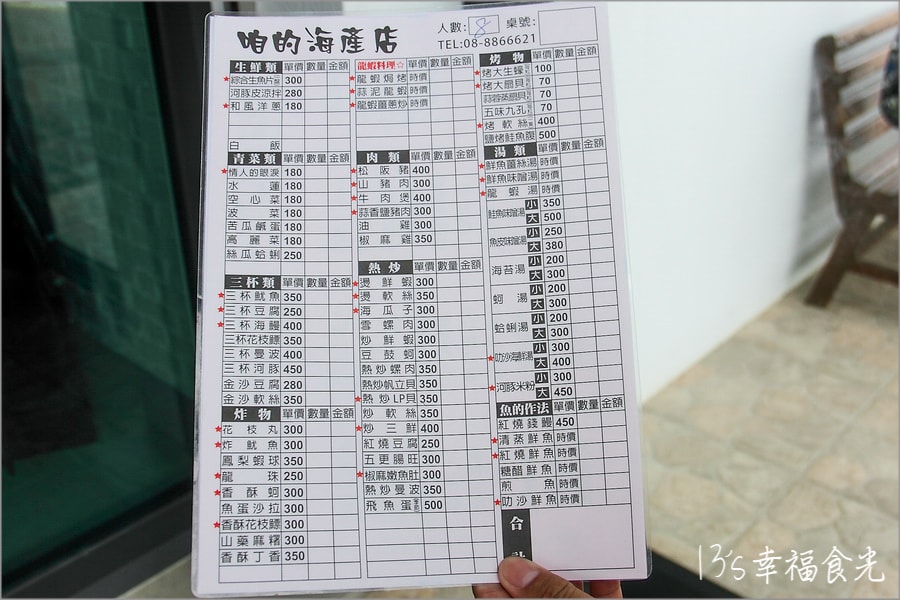 咱的海產店
人數: 8 桌號:
TEL:08-8866621
生鮮類 單價 數量 金額
綜合生魚片 300
河豚皮涼拌 280
和風洋蔥 180
白飯
青菜類 單價 數量 金額
情人的眼淚 180
水蓮 180
空心菜 180
菠菜 180
苦瓜鹹蛋 180
高麗菜 180
絲瓜蛤蜊 250
三杯類 單價 數量 金額
三杯魷魚 350
三杯豆腐 250
三杯海鱺 400
三杯花枝鏢 350
三杯曼波 400
三杯河豚 450
金沙豆腐 280
金沙軟絲 350
炸物 單價 數量 金額
花枝丸 300
炸魷魚 300
鳳梨蝦球 350
龍珠 250
香酥蚵 300
魚蛋沙拉 300
香酥花枝鏢 300
山藥麻糬 300
香酥丁香 350
龍蝦料理☆ 單價 數量 金額
龍蝦焗烤 時價
蒜泥龍蝦 時價
龍蝦薑蔥炒 時價
肉類 單價 數量 金額
松阪豬 400
山豬肉 300
牛肉煲 400
蒜香鹽豬肉 300
油雞 300
椒麻雞 350
熱炒 單價 數量 金額
燙鮮蝦 300
燙軟絲 350
海瓜子 300
雪螺肉 300
炒鮮蝦 300
豆鼓蚵 300
熱炒螺肉 350
熱炒帆立貝 350
熱炒LP貝 350
炒軟絲 350
炒三鮮 400
紅燒豆腐 250
五更腸旺 300
椒麻嫩魚肚 300
熱炒曼波 350
飛魚蛋 500
烤物 單價 數量 金額
烤大生蠔 100
烤大扇貝 70
蒜蓉蒸扇貝 70
五味九孔 70
烤軟絲 400
鹽烤鮭魚腹 500
湯類 單價 數量 金額
鮮魚薑絲湯 時價
鮮魚味噌湯 時價
龍蝦湯 時價
鮭魚味噌湯 小 350
大 500
魚皮味噌湯 小 250
大 380
海苔湯 小 200
大 300
蚵湯 小 200
大 300
蛤蜊湯 小 200
大 300
叻沙海鮮湯 小 300
大 400
河豚米粉 小 300
大 450
魚的作法 單價 數量 金額
紅燒錢鰻 450
清蒸鮮魚 時價
紅燒鮮魚 時價
糖醋鮮魚 時價
煎魚 時價
叻沙鮮魚 時價
合計
13's幸福食光